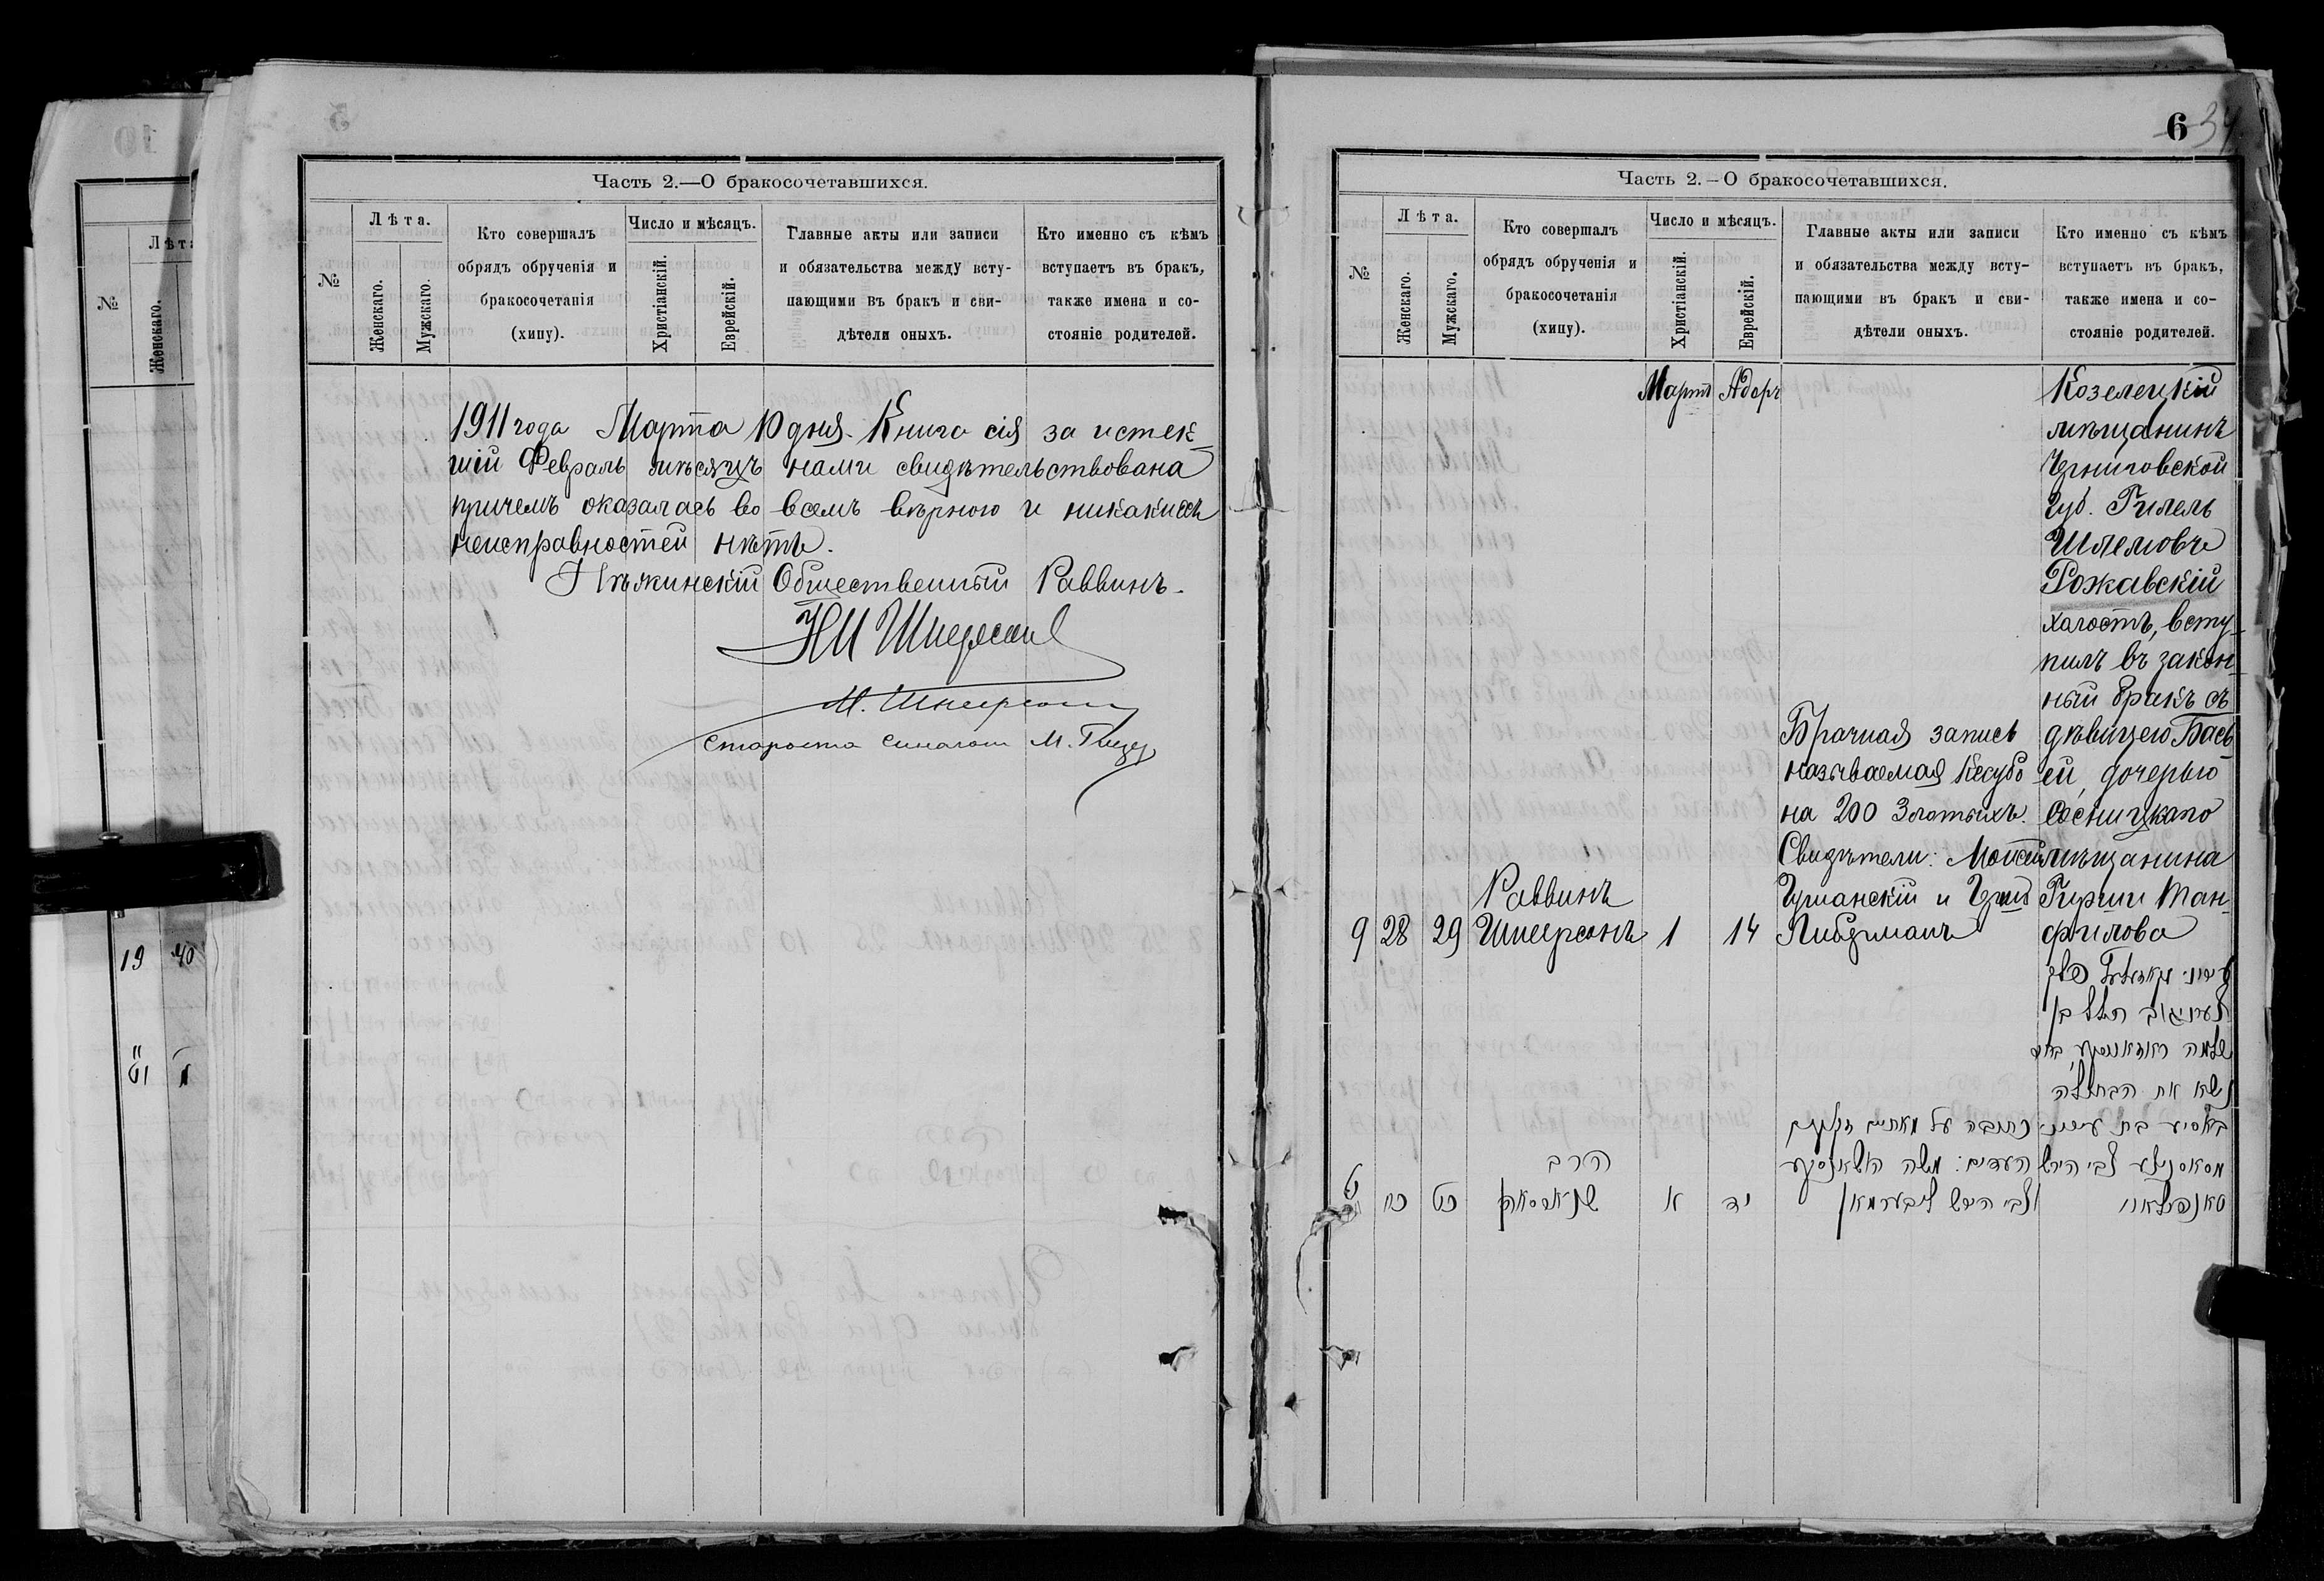 10
Лѣт
№
Женскаго.
19 40
5
Часть 2.—О бракосочетавшихся.
№
Лѣта.
Женскаго.
Мужскаго.
Кто совершалъ
обрядъ обрученія и
бракосочетанія
(хипу).
Число и мѣсяцъ.
Христіанскій.
Еврейскій.
Главные акты или записи
и обязательства между всту-
пающими въ бракъ и сви-
дѣтели оныхъ.
Кто именно съ кѣмъ
вступаетъ въ бракъ,
также имена и со-
стояніе родителей.
1911 года Марта 10 дня. Книга сія за истек-
шій Февраль мѣсяцъ нами свидѣтельствована
причемъ оказалась во всемъ вѣрною и никакихъ
неисправностей нѣтъ.
Нѣжинскій Общественный Раввинъ.
Шнеерсонъ
М. Шнеерсонъ
Староста синагоги М.
6 34
Часть 2.–О бракосочетавшихся.
№
Лѣта.
Женскаго.
Мужскаго.
Кто совершалъ
обрядъ обрученія и
бракосочетанія
(хипу).
Число и мѣсяцъ.
Христіанскій.
Еврейскій.
Главные акты или записи
и обязательства между всту-
пающими въ бракъ и сви-
дѣтели оныхъ.
Кто именно съ кѣмъ
вступаетъ въ бракъ,
также имена и со-
стояніе родителей.
Мартъ Адоръ
9 28 29
Раввинъ
Шнеерсонъ
1 14
Брачная запись
называемая Кесубо
на 200 Злотыхъ.
Свидѣтели: Мовша
и
Либерманъ
Козелецкій
мѣщанинъ
Черниговской
Губ. Гилель
Шлемовъ
Рожавскій
холостъ, всту-
пилъ въ закон-
ный бракъ съ
дѣвицею Бась-
ей, дочерью
Сосницкаго
мѣщанина
Гирши Ман-
філова
הלל בן
שלמה
נשא את הבתולה
בת
כתובה על מאתים
העדים: משה
צבי הירש ליבערמאן
הרב
ט כח כט
א יד